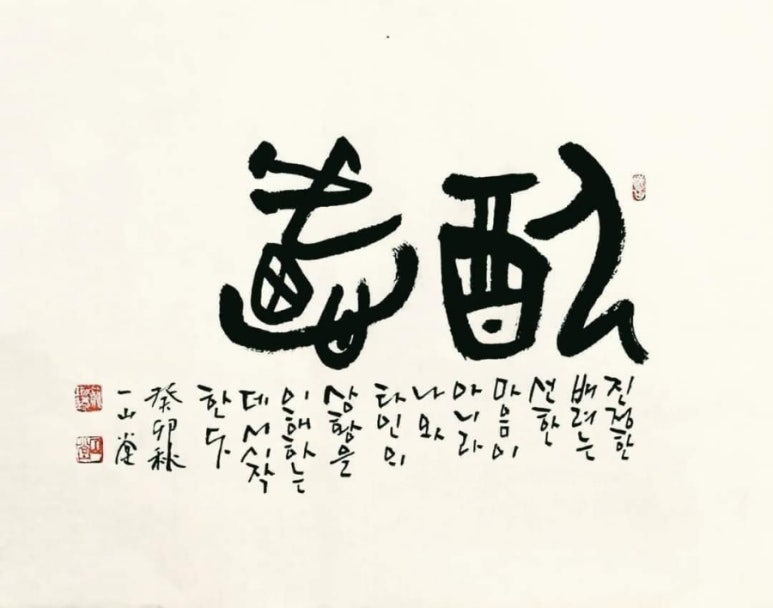 配慮
진정한
배려는
선한
마음이
아니라
나와
타인의
상황을
이해하는
데서시작
한다
癸卯秋
一山堂